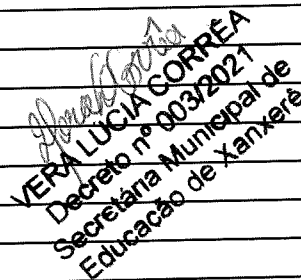 VERA LUCIA CORRÊA
Decreto nº 003/2021
Secretária Municipal de
Educação de Xanxerê